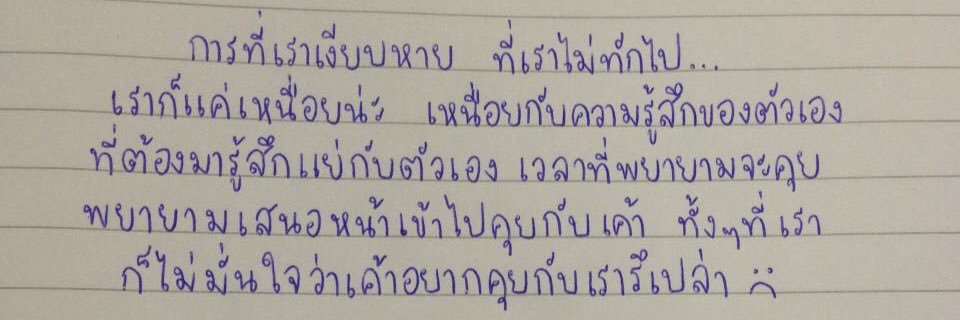 การที่เราเงียบหาย ที่เราไม่ทักไป...
เราก็แค่เหนื่อยน่ะ เหนื่อยกับความรู้สึกของตัวเอง
ที่ต้องมารู้สึกแย่กับตัวเอง เวลาที่พยายามจะคุย
พยายามเสนอหน้าเข้าไปคุยกับเค้า ทั้งๆที่เรา
ก็ไม่มั่นใจว่าเค้าอยากคุยกับเรารึเปล่า :(